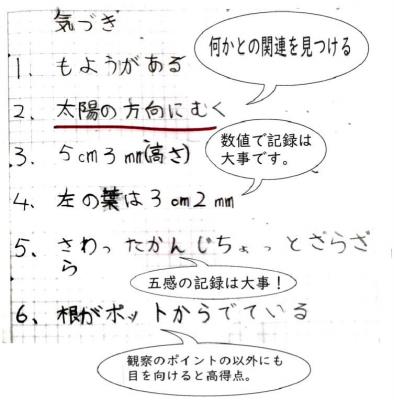 気づき
何かとの関連を見つける
1、もようがある
2、太陽の方向にむく
数値で記録は
大事です。
3、5cm3mm(高さ)
4、左の葉は3cm2mm
5、さわったかんじちょっとざらざ
ら
五感の記録は大事！
6、根がポットからでている
観察のポイントの以外にも
目を向けると高得点。